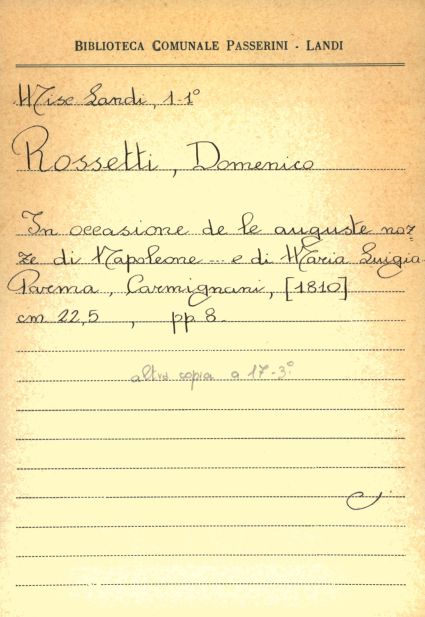 BIBLIOTECA COMUNALE PASSERINI - LANDI
Misc Landi, 1-1°
Rossetti, Domenico
In occasione de le auguste noz=
ze di Napoleone ... e di Maria Luigia
Parma, Carmignani, [1810]
cm 22,5 , pp 8.
altra copia a 17-3°.